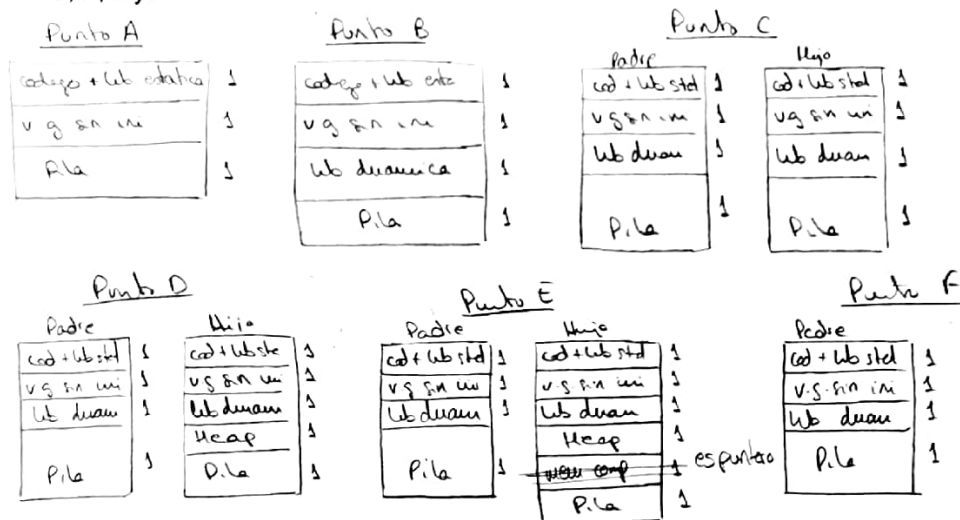 Punto A
codego + lib estatica 1
v g sin ini 1
Pila 1
Punto B
codego + lib esta 1
v g sin ini 1
lib dinamica 1
Pila 1
Punto C
Padre
cod + lib std 1
v g sin ini 1
lib dinam 1
Pila 1
Hijo
cod + lib std 1
v g sin ini 1
lib dinam 1
Pila 1
Punto D
Padre
cod + lib std 1
v g sin ini 1
lib dinam 1
Pila 1
Hijo
cod + lib ste 1
v g sin ini 1
lib dinam 1
Heap 1
Pila 1
Punto E
Padre
cod + lib std 1
v g sin ini 1
lib dinam 1
Pila 1
Hijo
cod + lib std 1
v.g sin ini 1
lib dinam 1
Heap 1
mem comp 1 es puntero
Pila 1
Punto F
Padre
cod + lib std 1
v.g. sin ini 1
lib dinam 1
Pila 1